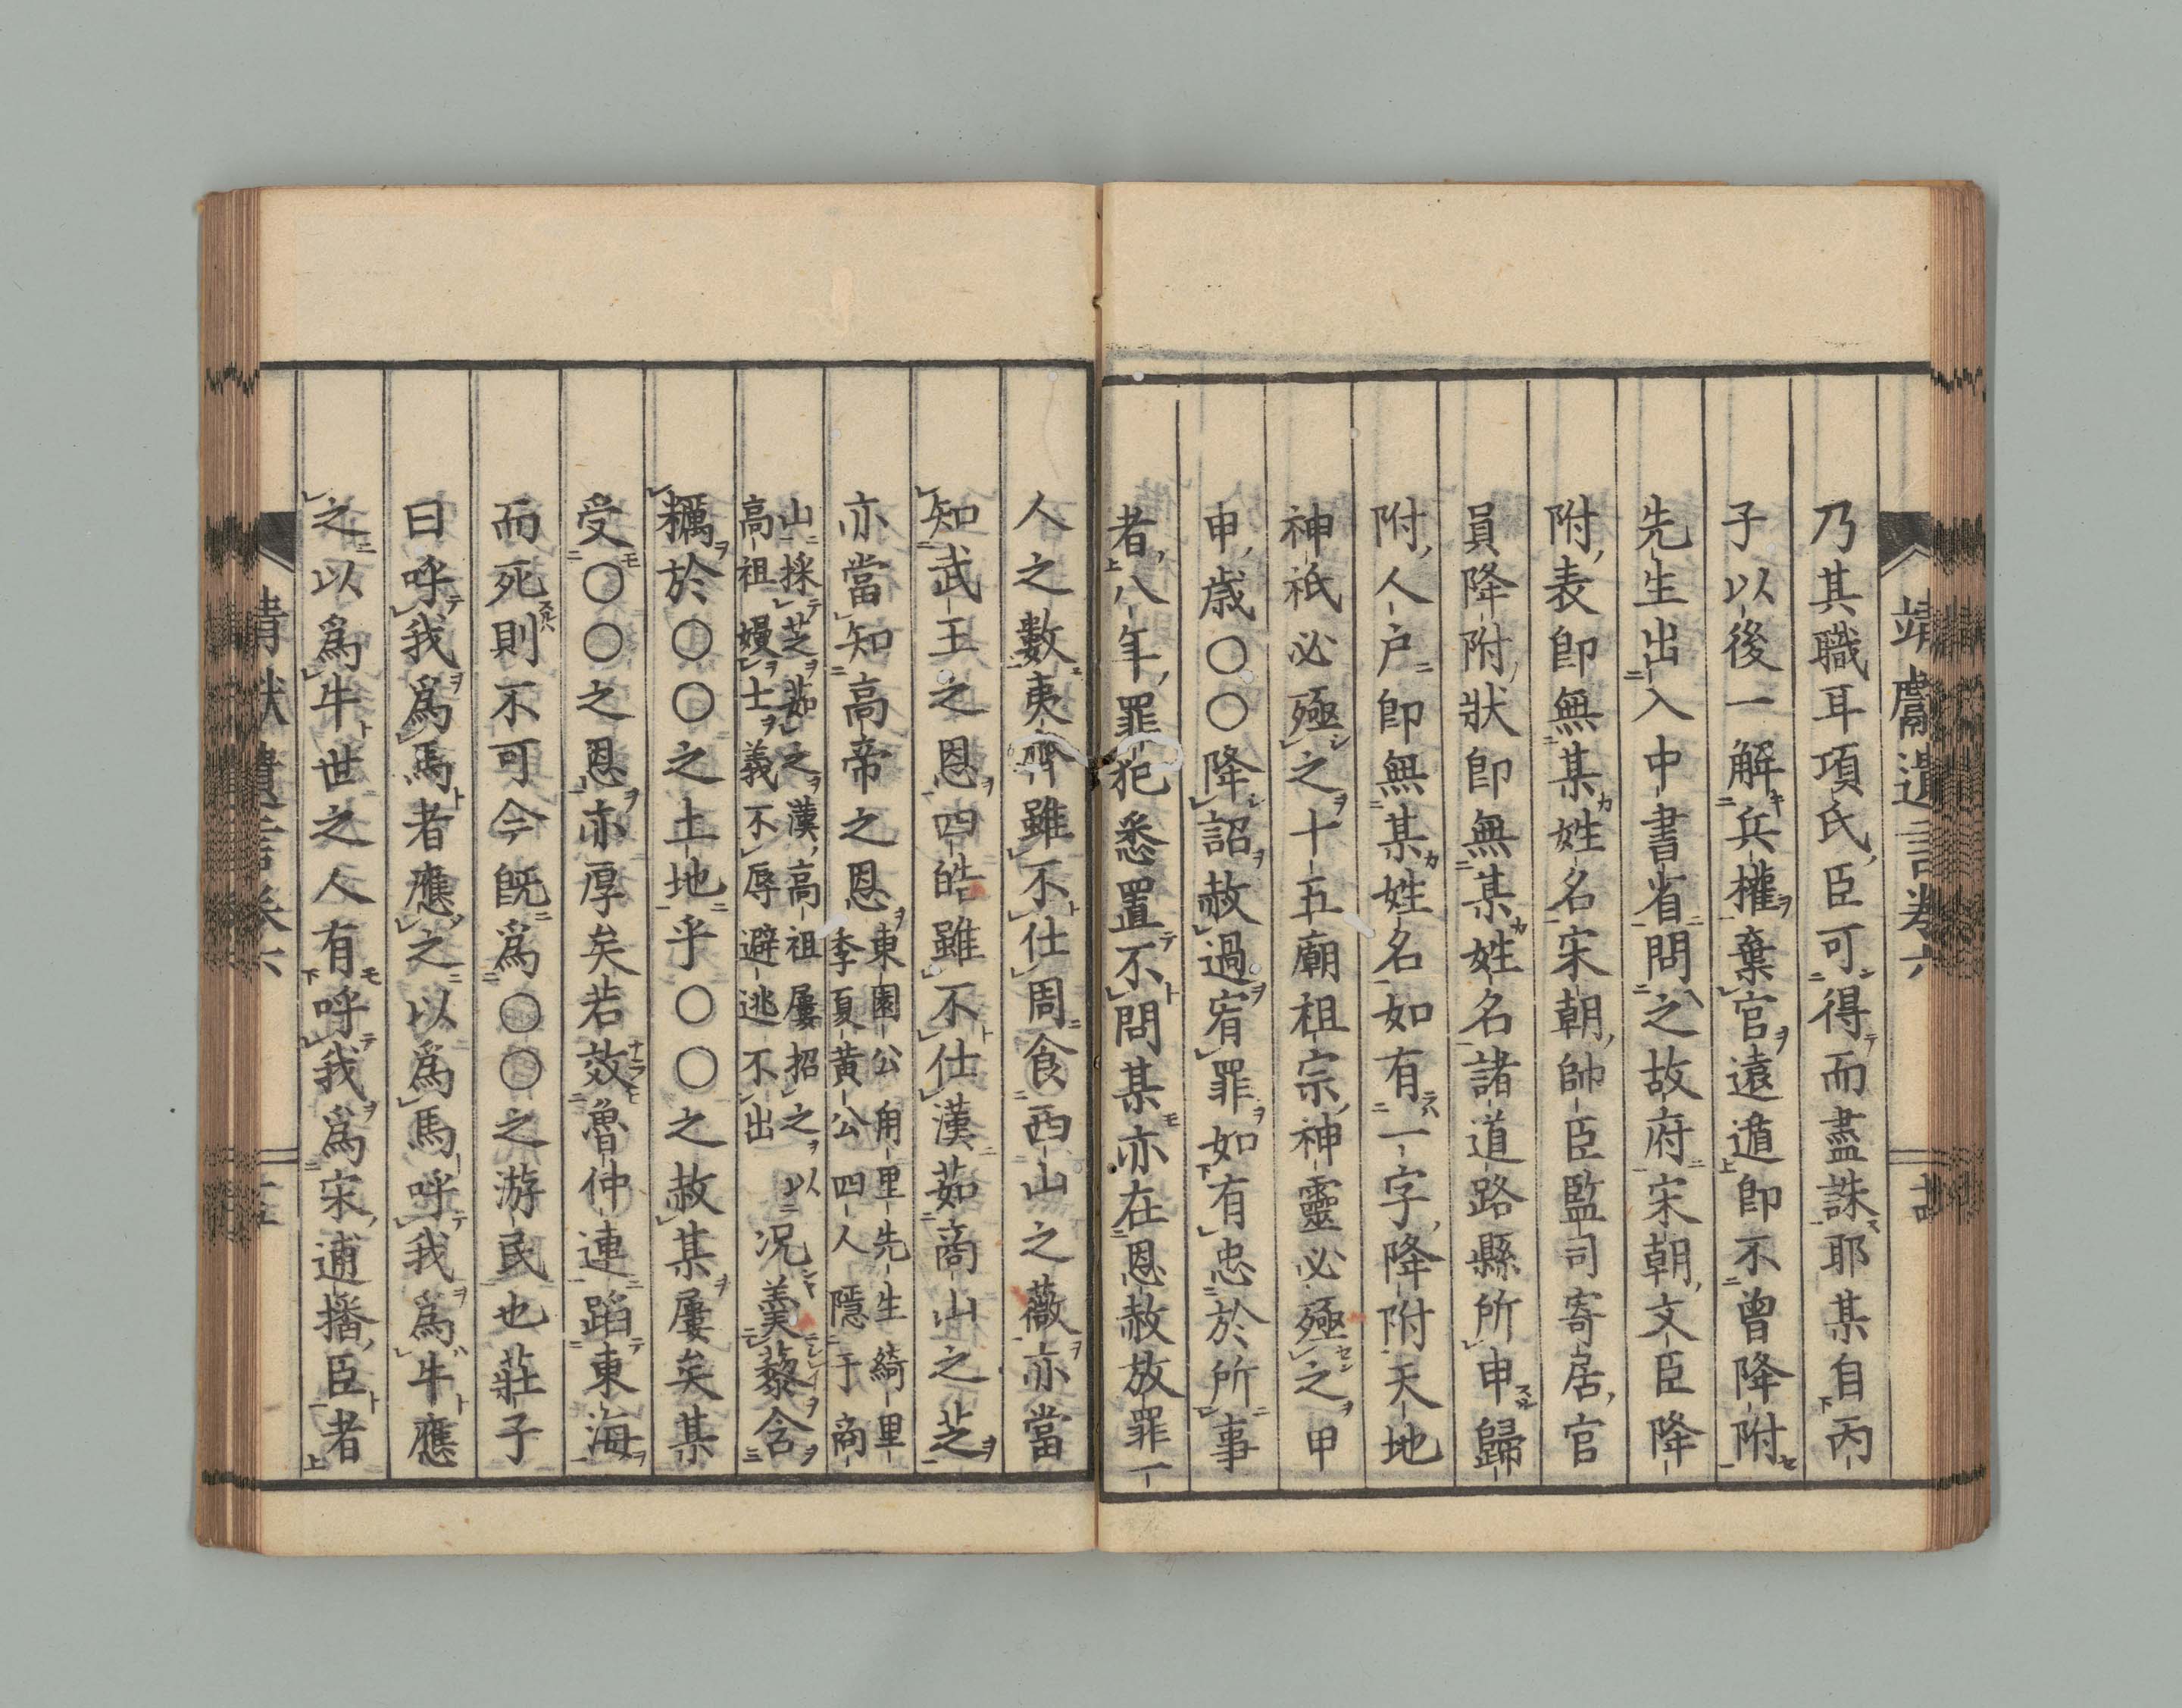 靖獻遺言卷六
乃其職耳項氏臣可得而盡誅耶某自丙
子以後一解兵權棄官遠遁即不曾降附
先生出入中書省問之故府宋朝文臣降
附表即無某姓名宋朝帥臣監司寄居官
員降附狀即無某姓名諸道路縣所申歸
附人戶即無某姓名如有一字降附天地
神祇必殛之十五廟祖宗神靈必殛之甲
申歲〇〇降詔赦過宥罪如有忠於所事
者八年罪犯悉置不問某亦在恩赦放罪一
人之數夷齊雖不仕周食西山之薇亦當
知武王之恩四皓雖不仕漢茹商山之芝
亦當知高帝之恩東園公甪里先生綺里
季夏黃公四人隱于商
山採芝茹之漢高祖屢招之以
高祖嫚士義不辱避逃不出
况羹藜含
糲於〇〇之土地乎〇〇之赦某屢矣某
受〇〇之恩亦厚矣若效魯仲連蹈東海
而死則不可今既爲〇〇之游民也莊子
曰呼我爲馬者應之以爲馬呼我爲牛應
之以爲牛世之人有呼我爲宋逋播臣者